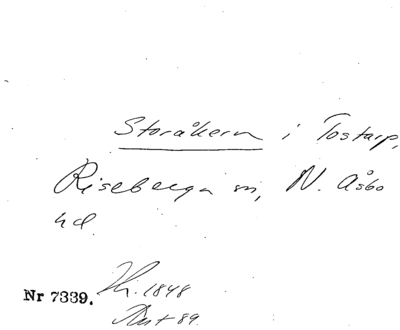 Storåkern i Tostarp,
Riseberga sn, N. Åsbo
hd.
Hi. 1848
Nr 7339.
Avst 89.